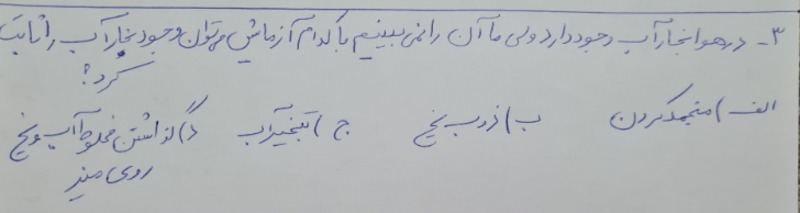 ۳- در هوا بخار آب وجود دارد ولی ما آن را نمی بینیم با کدام آزمایش می توان وجود بخار آب را ثابت
کرد؟
الف) منجمد کردن ب) ذوب یخ ج) تبخیر آب د) گذاشتن مخلوط آب و یخ
روی میز